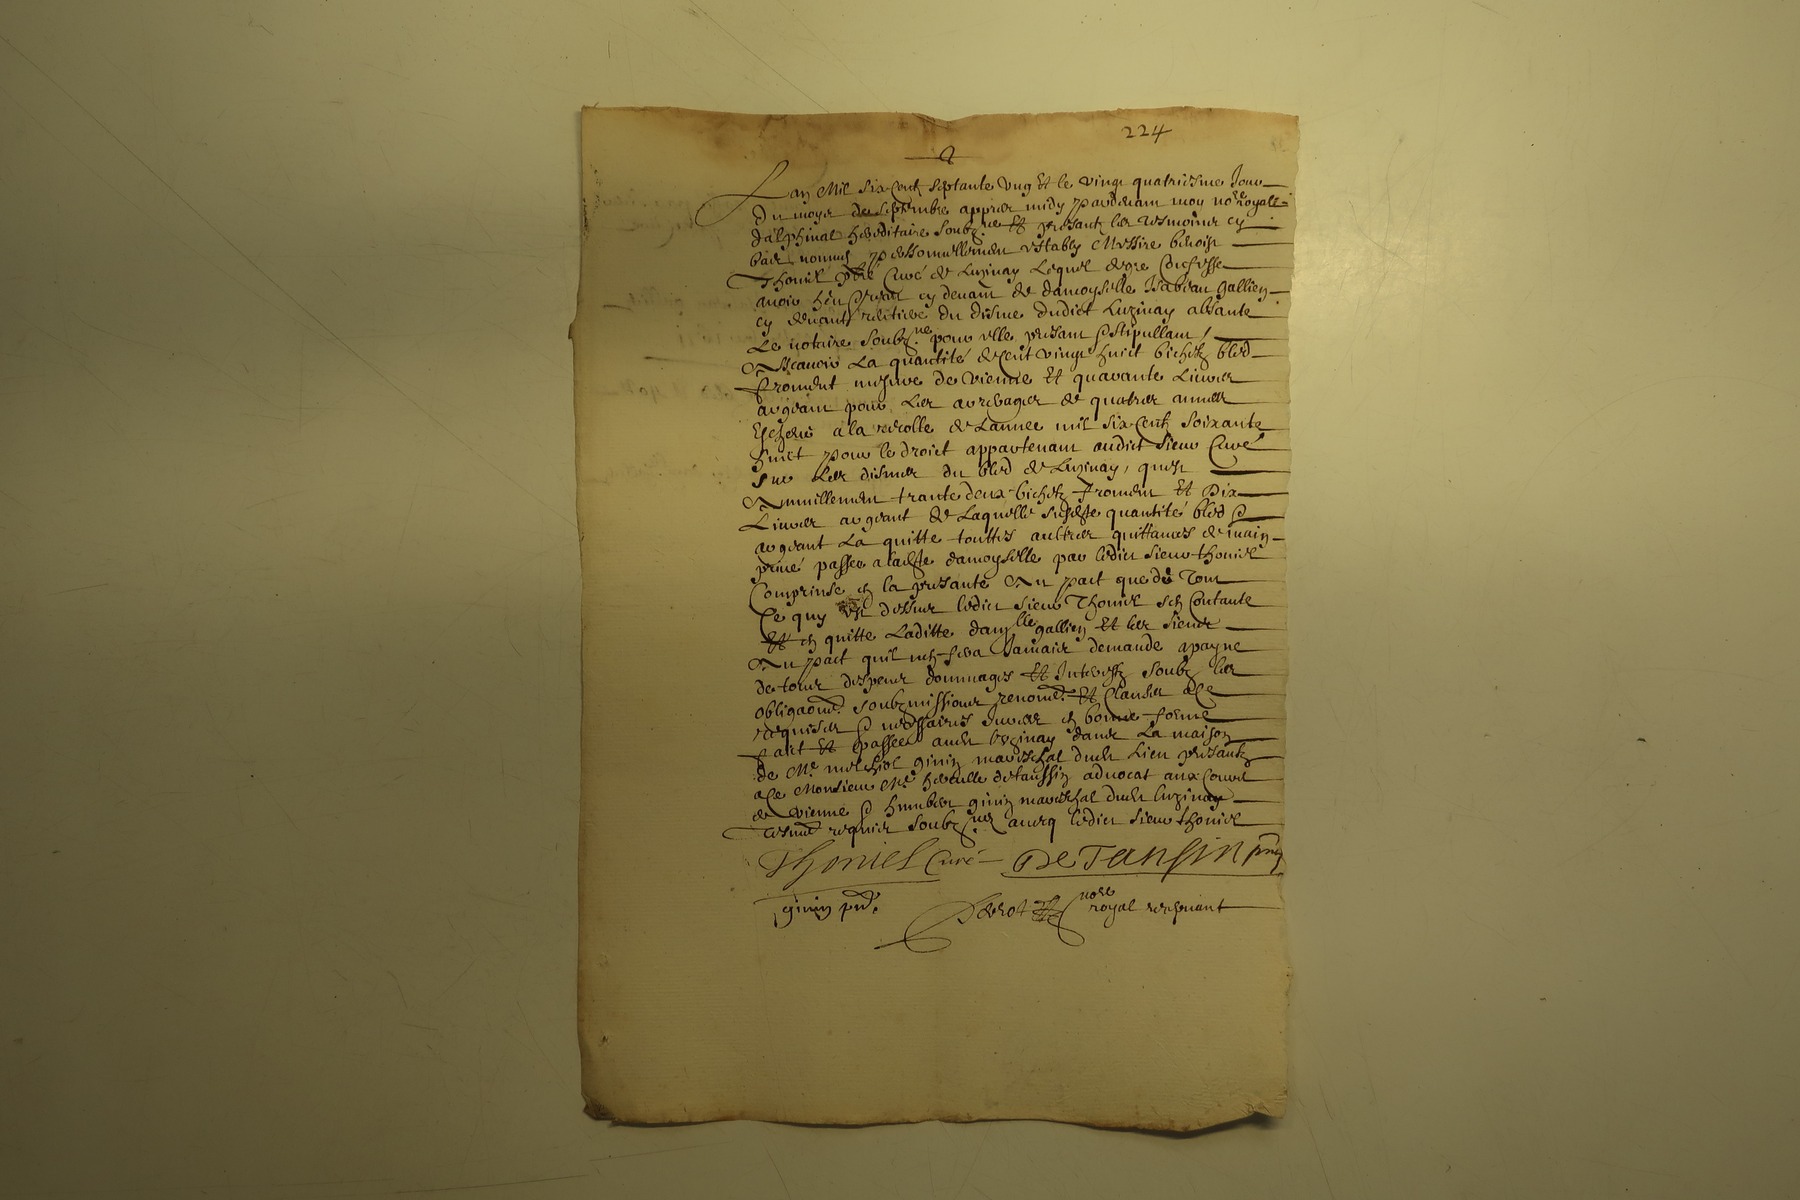 224
Lan Mil six Centz septante ung Et le vingt quatriesme Jour
du moys de septembre appres midy pardevant moy no.re royal
dalphinal hereditaire soubz.ne Et presantz les tesmoins cy
bas nommes personnellement estably Messire benoist
Thoniel pbre Curé de Luzinay Lequel de gre Confesse
avoir heu cy devant de damoyselle Isabeau gallien
cy devant du disme dudict Luzinay absante
Le notaire soubz.ne pour elle presant stipullant /
Ascavoir La quantité de cent vingt huict bichetz bled
froment mesure de vienne Et quarante Livres
argent pour Les arreyrages de quatres annees
Escheue a la recolte de Lannee mil six Centz soixante
huict pour le droict appartenant audict sieur Curé
sur Les dismes du bled de Luzinay, quest
Annuellement trante deux bichetz froment Et Dix
Livres argent de Laquelle susdte quantité bled &
argent La quitte touttes aultres quittances de main
privé passee a ladte damoyselle par ledict sieur thoniel
Comprinse en la presante Au pact que de Tout
Ce quy est dessus ledict sieur Thoniel sen Contante
Et en quitte Laditte dam.lle gallien Et les siens
Au pact quil nen sera Jamais demande a payne
de tous despens dommages Et Interestz soubz les
obligaons soubzmissions renon.s Et Clauses a Ce
requises & necessaires Jurees en bonne forme
faict Et passee audt luzinay dans La maison
de Me melchiol ginin mareschal dudt Lieu presantz
a Ce Monsieur Me hercule detanssin advocat aux Cours
de vienne & humbert ginin mareschal dudt luzinay
tesmos requis soubz.nes avecq ledict sieur thoniel
Thoniel Curé De Tansin pnt
ginin pnt. no.re royal recepvant